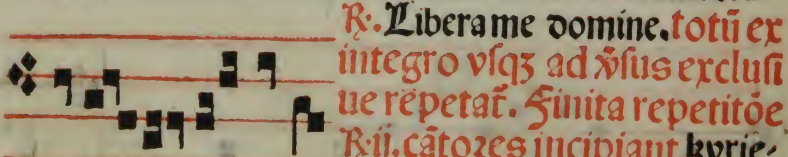 ℟. Libera me domine. totū ex
integro vſqꝫ ad v̄ſus excluſi
ue repetat̄. Finita repetitōe
℟. ij. cātores incipiant kyrie⸗